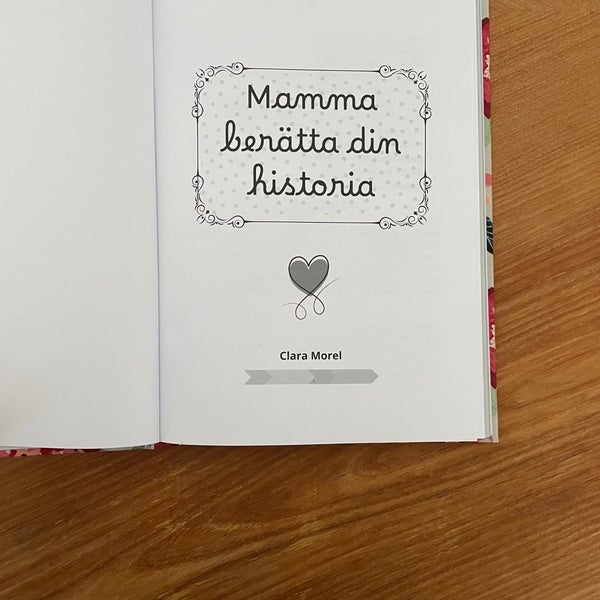 Mamma
berätta din
historia
Clara Morel